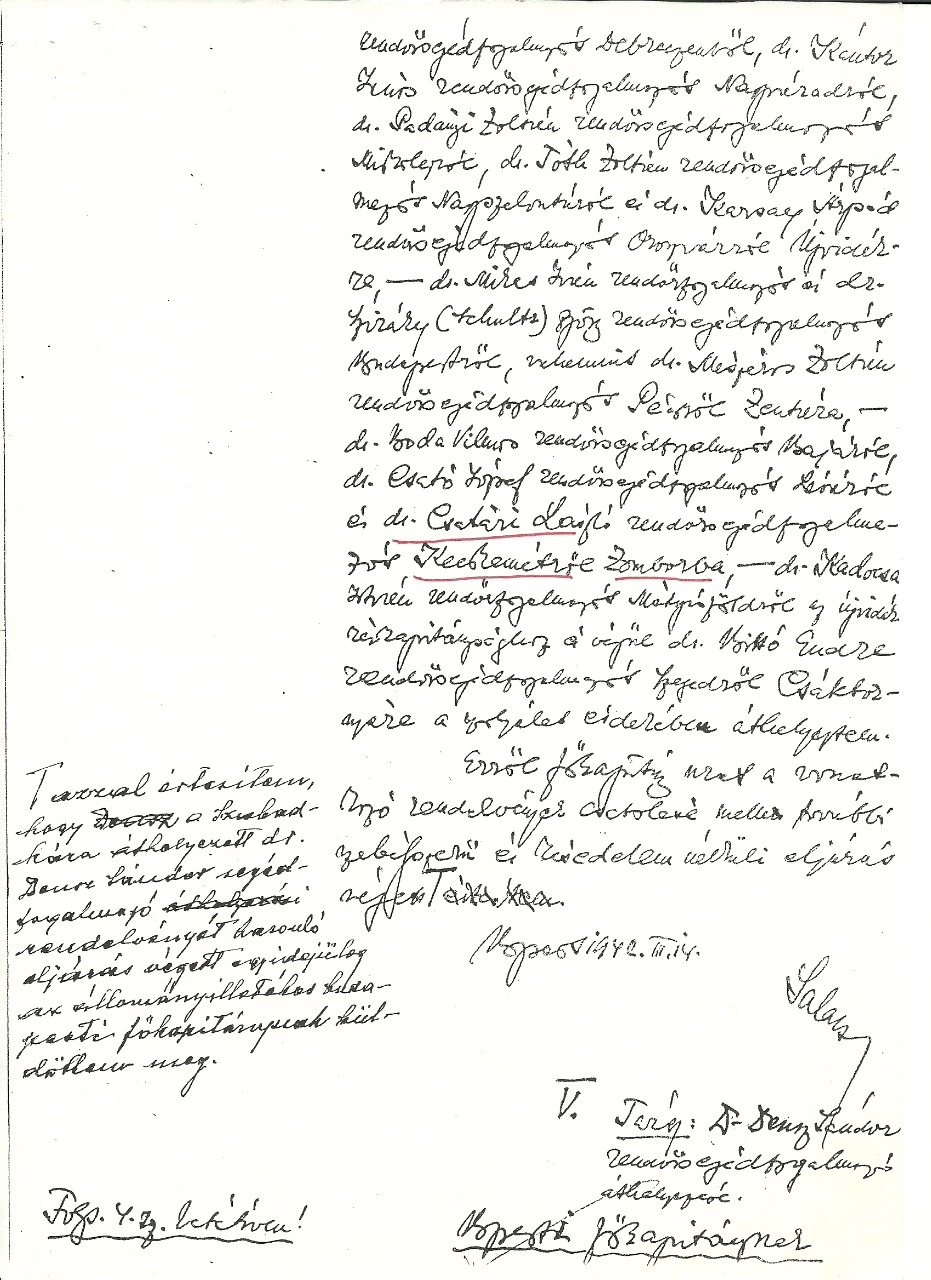 rendőrségédfogalmazót Debrecenből, dr. Kántor
rendőrségédfogalmazót Nagyváradról,
dr. Padányi Zoltán rendőrségédfogalmazót
dr. Tóth Zoltán rendőrségédfogal-
mazót Nagyszalontáról és dr. Karsay Árpád
rendőrségédfogalmazót Újvidék-
re, — dr. Mikes Iván rendőrfogalmazót és dr.
Király (Schultz) rendőrségédfogalmazót
Budapestről, valamint dr. Mészáros Zoltán
rendőrségédfogalmazót Pécsről Zentára, —
dr. Boda Vilmos rendőrségédfogalmazót Bajáról,
dr. Csató József rendőrségédfogalmazót
és dr. Csatári László rendőrségédfogalma-
zót Kecskemétről Zomborba, — dr. Kadocsa
István rendőrfogalmazót Mátyásföldről az újvidéki
kapitánysághoz és végül dr. Bittó Endre
rendőrségédfogalmazót Szegedről Csáktor-
nyára a szolgálat érdekében áthelyeztem.
Erről főkapitány urat a vonat-
kozó rendelvények csatolása mellett további
és késedelem nélküli eljárás
végett
Bpest 1942. III. 14.
Salacz
T azzal értesítem,
hogy a Szabad-
kára áthelyezett dr.
Sándor segéd-
fogalmazó
rendelvényét hasonló
eljárás végett egyidejűleg
az állományilletékes buda-
pesti főkapitánynak kül-
döttem meg.
V.
Tárgy: Dr. Sándor
rendőrségédfogalmazó
áthelyezése.
Bpesti főkapitánynak